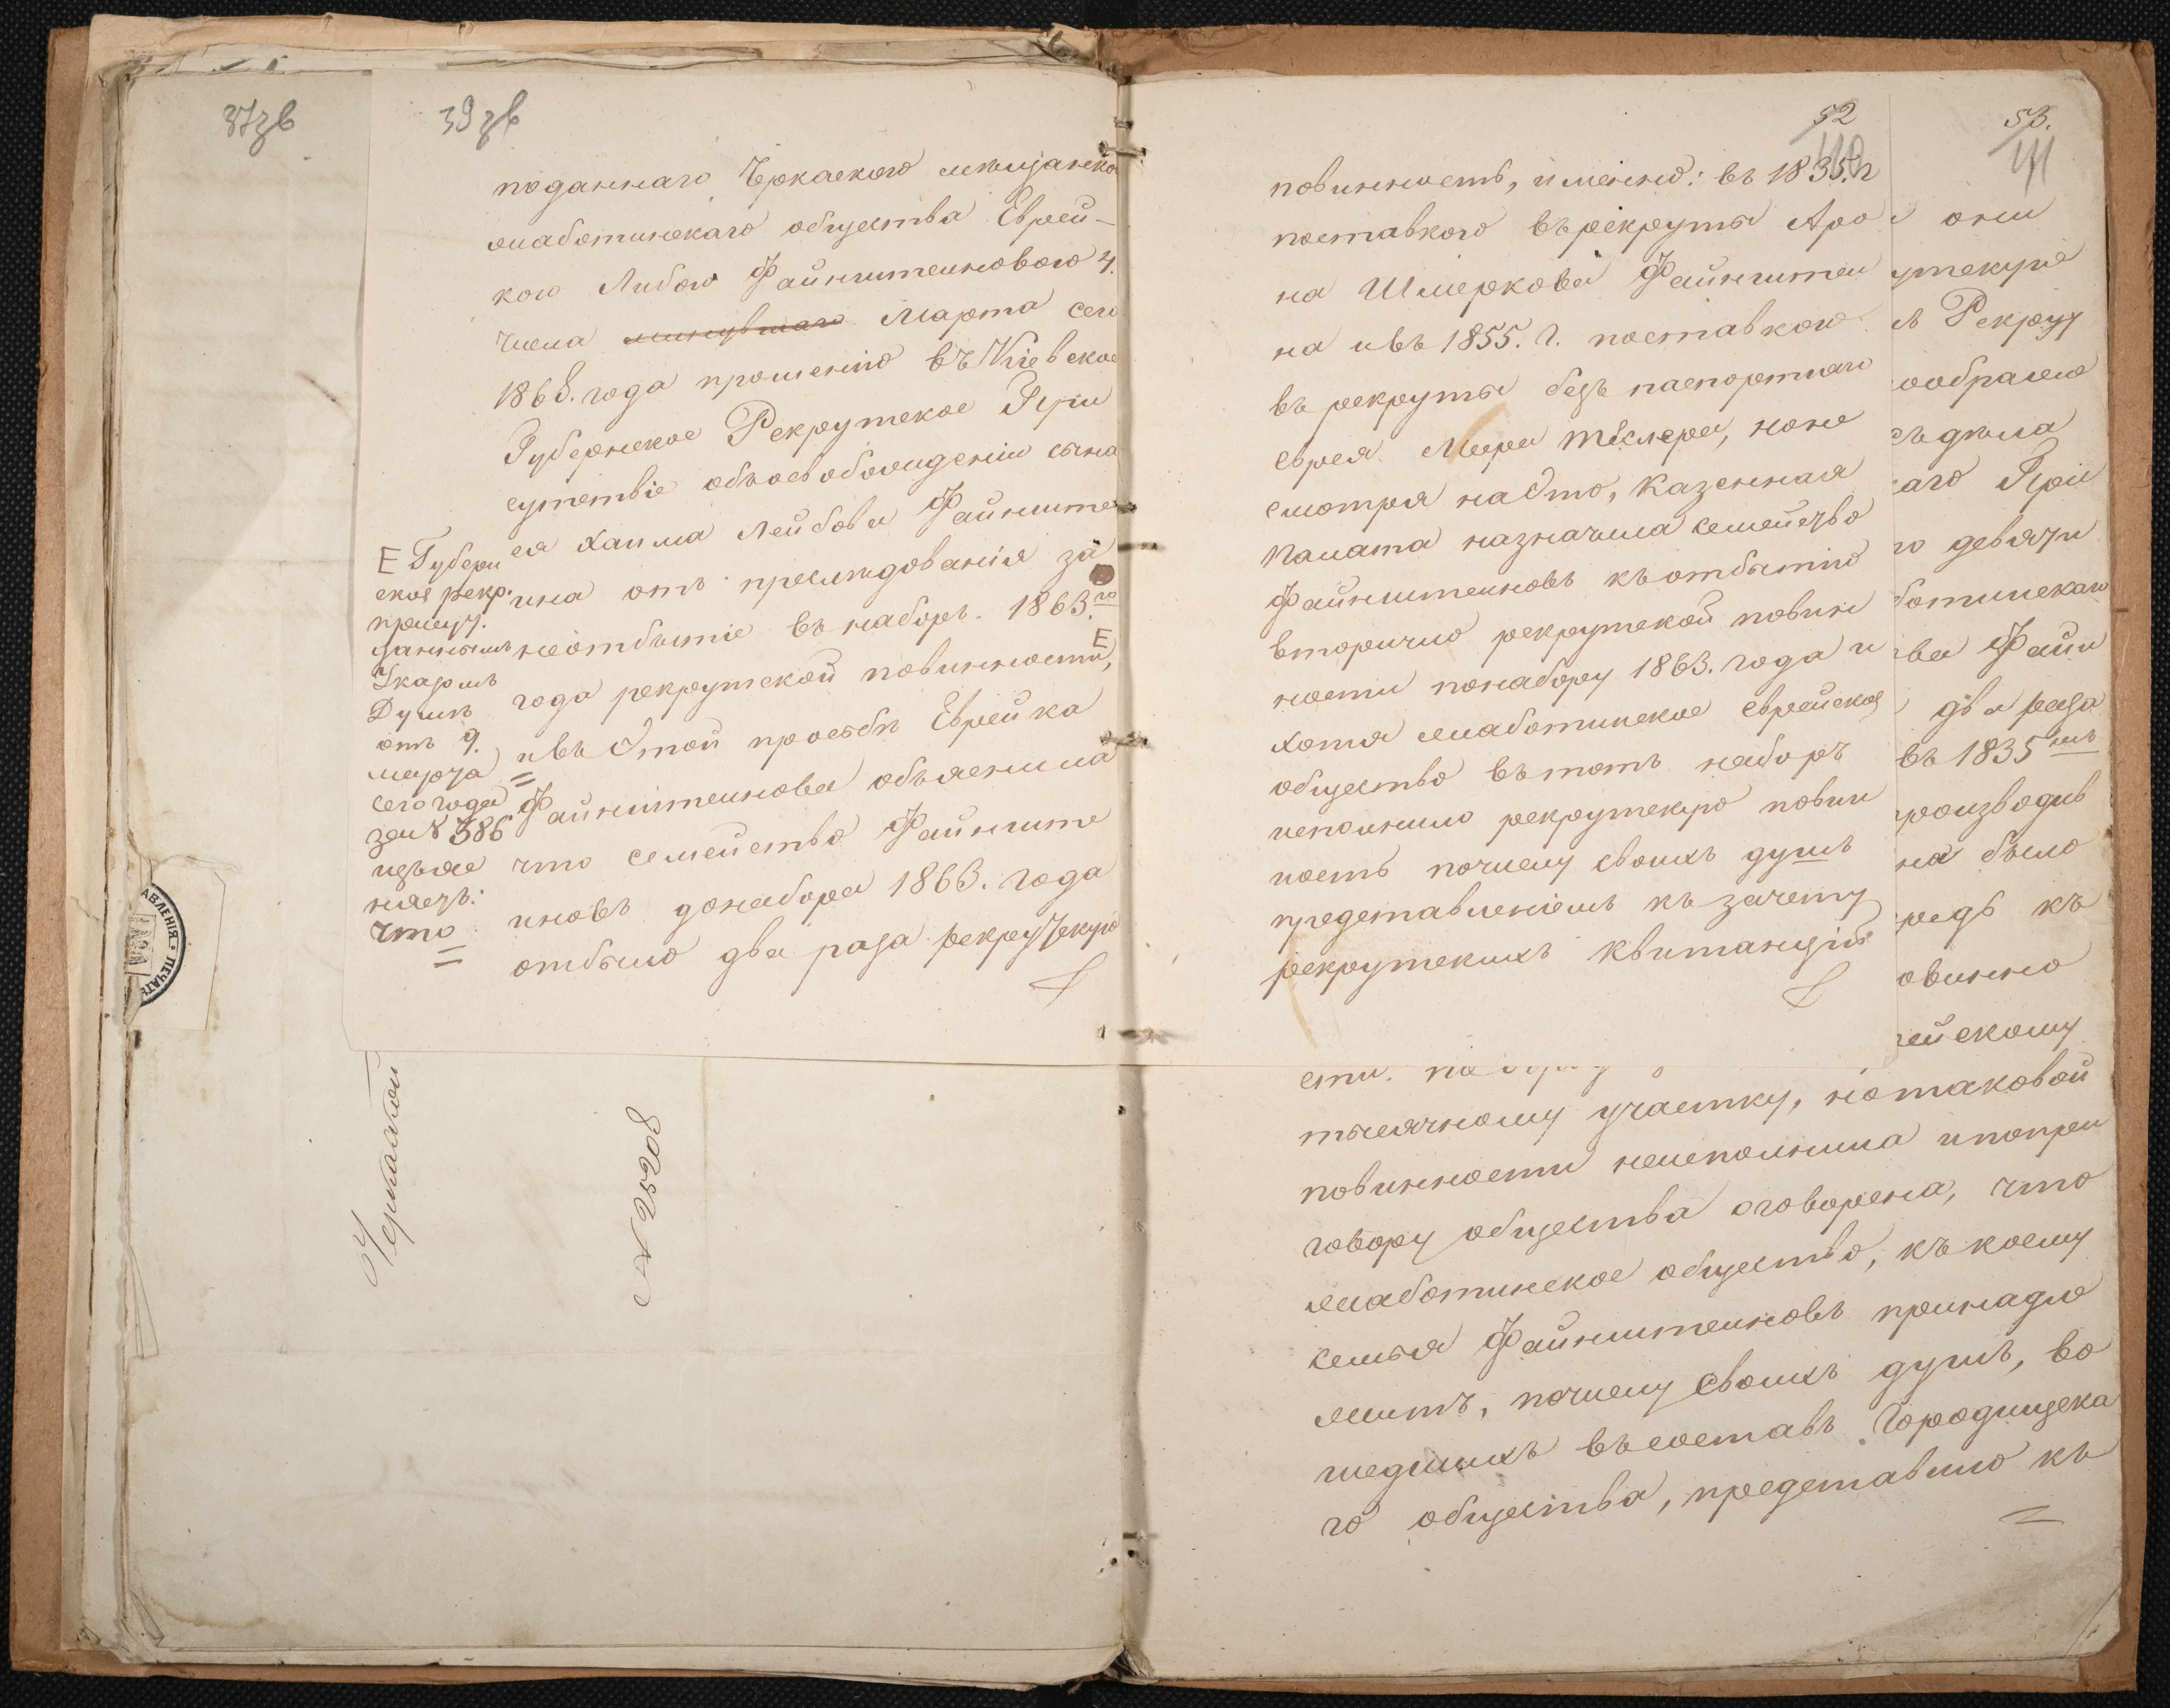 37зв
39зв
поданнаго Черкаскою мѣщанско
смаботинскаго общества Еврей-
кою Либою Файнштеиновою 4.
числа минувшаго Марта сего
1868. года прошенію въ Кіевское
Губернское Рекрутское При
сутствіе объ освобожденіи сына
ея Хаима Лейбова Файнште
ина отъ преслѣдованія за
неотбытіе въ наборъ 1863.го
года рекрутской повинности, Е
и въ этой просьбѣ Еврейка
Файнштеинова объяснила
что семейство Файнште
иновъ до набора 1863. года
отбыло два раза рекрутскую
Е Губерн
ское рекр.
присут.
даннымъ
Указомъ
Думѣ
отъ 9.
марта
сего года
за № 386
изъяс
няетъ:
что
АВЛЕНІЯ
ПЕЧАТЬ
Черкаской
№ 25208
52
110
повинность, именно: въ 1835. г
поставкою въ рекруты Аро
на Шмеркова Файнштеи
на и въ 1855. г. поставкою
въ рекруты безъ паспортнаго
еврея Меера Теслера, но не
смотря на это, Казенная
Палата назначила семейство
Файнштеиновъ къ отбытію
вторично рекрутской повин
ности по набору 1863. года и
хотя смаботинское еврейское
общество въ тотъ наборъ
исполнило рекрутскую повин
ность по числу своихъ душъ
представленіемъ къ зачету
рекрутскихъ квитанцій
53.
111
они
утскую
Рекрут
ообража
съ дѣла
аго При
девяти
ботинскаго
ва Файн
два раза
въ 1835 мъ
производив
на было
редь къ
овинно
ейскому
сти. по
тысячному участку, но таковой
повинности неисполнила и по при
говору общества оговорена, что
смаботинское общество, къ коему
семья Файнштеиновъ принадле
житъ, по числу своихъ душъ, во
шедшихъ въ составъ Городищска
го общества, представило къ